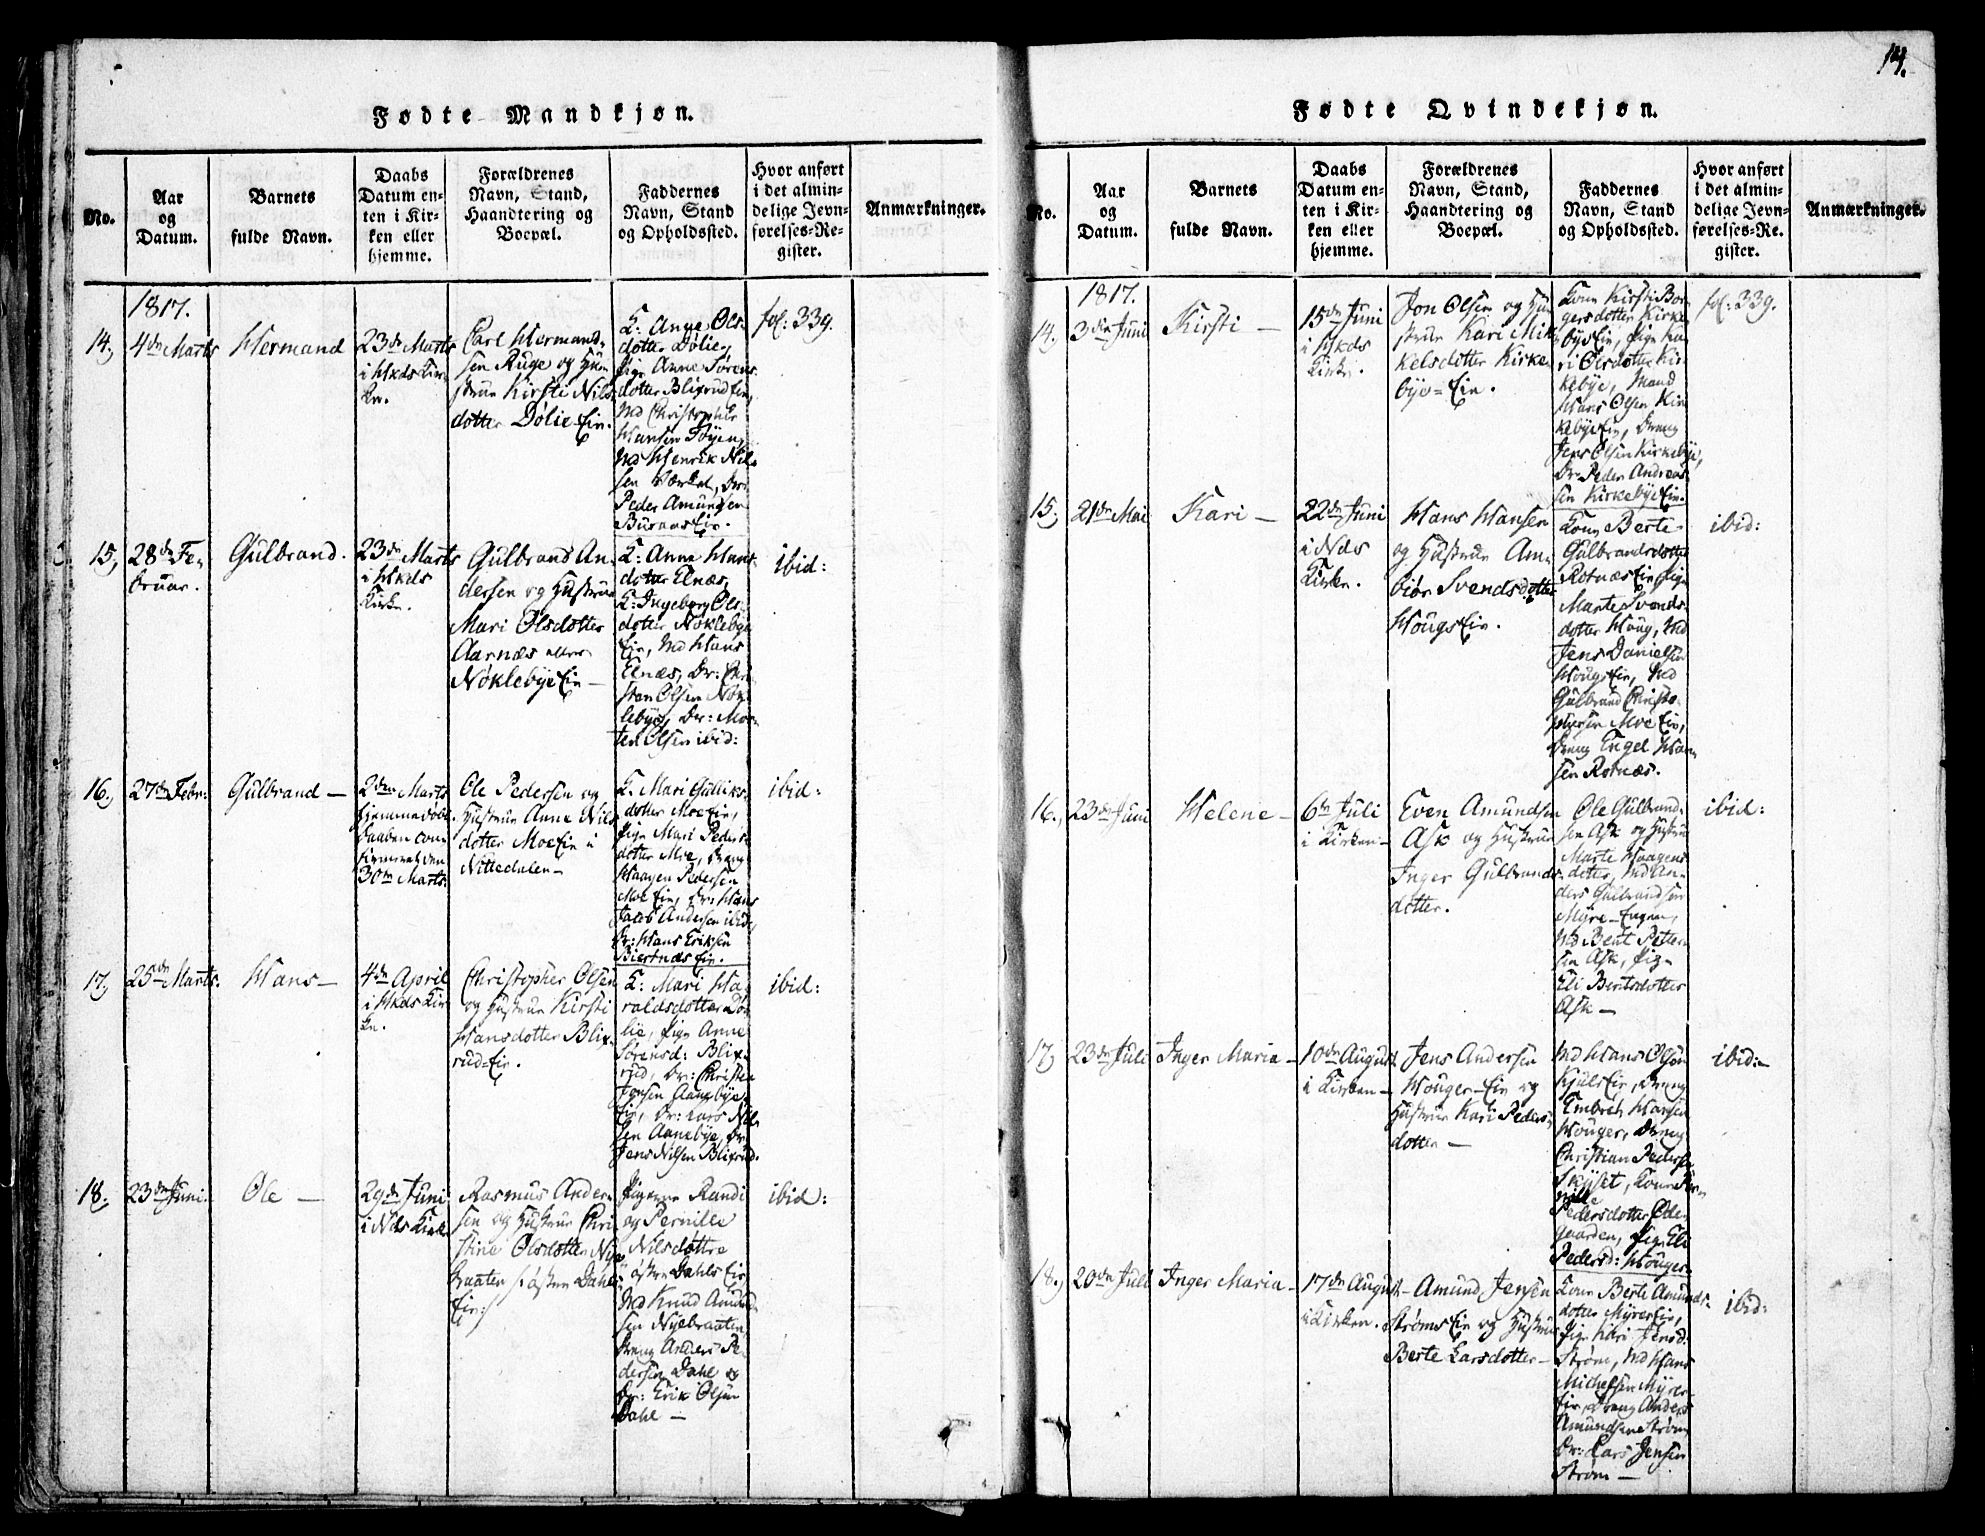 14.
Fødte Mandkjøn.
No.
Aar
og
Datum.
Barnets
fulde Navn.
Daabs
Datum en-
ten i Kir-
ken eller
hjemme.
Forældrenes
Navn, Stand,
Haandtering og
Boepæl.
Faddernes
Navn, Stand
og Opholdssted.
Hvor anført
i det almin-
delige Jevn-
førelses-Re-
gister.
Anmærkninger.
1817.
14,
4de Marts
Hermand
23de Marts
i Hkds Kir-
ke.
Carl Hermand-
sen Ruge og Hu-
strue Kirsti Nils-
dotter Dølie Eie.
K: Anne Ols-
dotter Dølie,
Pige Anne Sørens-
dotter Blixrud Eie,
Md Christopher
Hansen Tøyen,
Md Henrik Nil-
sen
Peder Amundsen
Buraas Eie.
fol: 339.
15,
28de Fe-
bruar.
Gulbrand.
23de Marts
i Hkds
Kirke.
Gulbrand An-
dersen og Hustrue
Mari Olsdotter
Aarnæs eller
Nøklebye Eie –
K: Anne Hans-
dotter Elnæs,
K: Ingeborg Ols-
dotter Nøklebye
Eie, Md Hans
Elnæs, Dr: Chri-
sten Olsen Nøk-
lebye, Dr: Mor-
ten Olsen ibid:
ibid:
16,
27de Febr:
Gulbrand –
2den Marts
hjemmedøbt.
Daaben con-
firmeret den
30te Marts.
Ole Pedersen og
Hustrue Anne Nils-
dotter Moe Eie i
Nittedalen –
K. Mari Gulliks-
dotter Moe Eie,
Pige Mari Peders-
dotter Moe, Dreng
Haagen Pedersen
Moe Eie, Dr: Hans
Jacob Andersen ibid,
Dr: Hans Eriksen
Biertnæs Eie.
ibid:
17,
25de Marts.
Hans –
4de April
i Hkds Kir-
ke.
Christopher Olsen
og Hustrue Kirsti
Hansdotter Blix-
rud-Eie.
K: Mari Ha-
raldsdotter Dø-
lie, Pige Anne
Sørensd: Blix-
rud, Dr: Christen
Jensen Aanebye
Eie, Dr: Lars Nil-
sen Aanebye, Dr.
Jens Nilsen Blixrud.
ibid:
18.
23de Juni.
Ole –
29de Juni
i Nds Kirke
Rasmus Ander-
sen og Hustrue Chri-
stine Olsdotter Nye-
braaten østen Dahls
Eie:
Pigerne Randi
og Pernille
Nilsdøttre
østen Dahls Eie
Md Knud Amund-
sen Nyebraaten
Dreng Anders Pe-
dersen Dahl og
Dr: Erik Olsen
Dahl –
ibid:
Fødte Qvindekjøn.
No.
Aar
og
Datum.
Barnets
fulde Navn.
Daabs
Datum en-
ten i Kir-
ken eller
hjemme.
Forældrenes
Navn, Stand,
Haandtering og
Boepæl.
Faddernes
Navn, Stand
og Opholdssted.
Hvor anført
i det almin-
delige Jevn-
førelses-Re-
gister.
Anmærkninger.
1817.
14,
3die Juni
Kirsti –
15de Juni
i Hkds
Kirke.
Jon Olsen og Hu-
strue Kari Mik-
kelsdotter Kirke-
bye-Eie.
Kone Kirsti Bor-
gersdotter Kirke-
bye Eie, Pige Ka-
ri Olsdotter Kir-
kebye, Mand
Hans Olsen Kir-
kebye Eie, Dreng
Jens Olsen Kirkebye,
Dr: Peder Andreas-
sen Kirkebye Eie.
fol: 339.
15,
21de Mai
Kari –
22de Juni
i Nds
Kirke.
Hans Hansen
og Hustrue Am-
biør Svendsdotter
Hougs Eie.
Kone Berte
Gulbrandsdotter
Rotnæs Eie, Pige
Marte Svends-
dotter Houg, Md
Jens Danielsen
Hougs Eie, Md
Gulbrand Christo-
phersen Moe Eie,
Dreng Engel Han-
sen Rotnæs.
ibid:
16.,
23de Juni
Helene –
6te Juli
i Kirken –
Even Amundsen
Ask og Hustrue
Inger Gulbrands-
dotter.
Ole Gulbrand-
sen Ask og Hustrue
Marte Haagens-
dotter, Md An-
ders Gulbrandsen
Myre-Engen,
Md Bent Peter-
sen Ask, Pige
Eli Bentsdotter
Ask –
ibid:
17,
23de Juli
Inger Maria –
10de August
i Kirken –
Jens Andersen
Houger-Eie og
Hustrue Kari Peders-
dotter –
Md Hans Olsen
Kjuls Eie, Dreng
Embret Hansen
Houger, Dreng
Christian Pedersen
Skyset, Kone Per-
nille
Pedersdotter Øde-
gaarden, Pige Eli
Pedersd: Houger.
ibid: –
18,
20de Juli
Inger Maria –
17de August
i Kirken.
Amund Jensen
Strøms Eie og Hustrue
Berte Larsdotter –
Kone Berte Amunds-
dotter Myrer Eie,
Pige Kari Jensd.
Strøm, Md Hans
Michelsen Myrer
Eie, Dreng Anders
Amundsen Strøm
Dr: Lars Jensen
Strøm –
ibid: